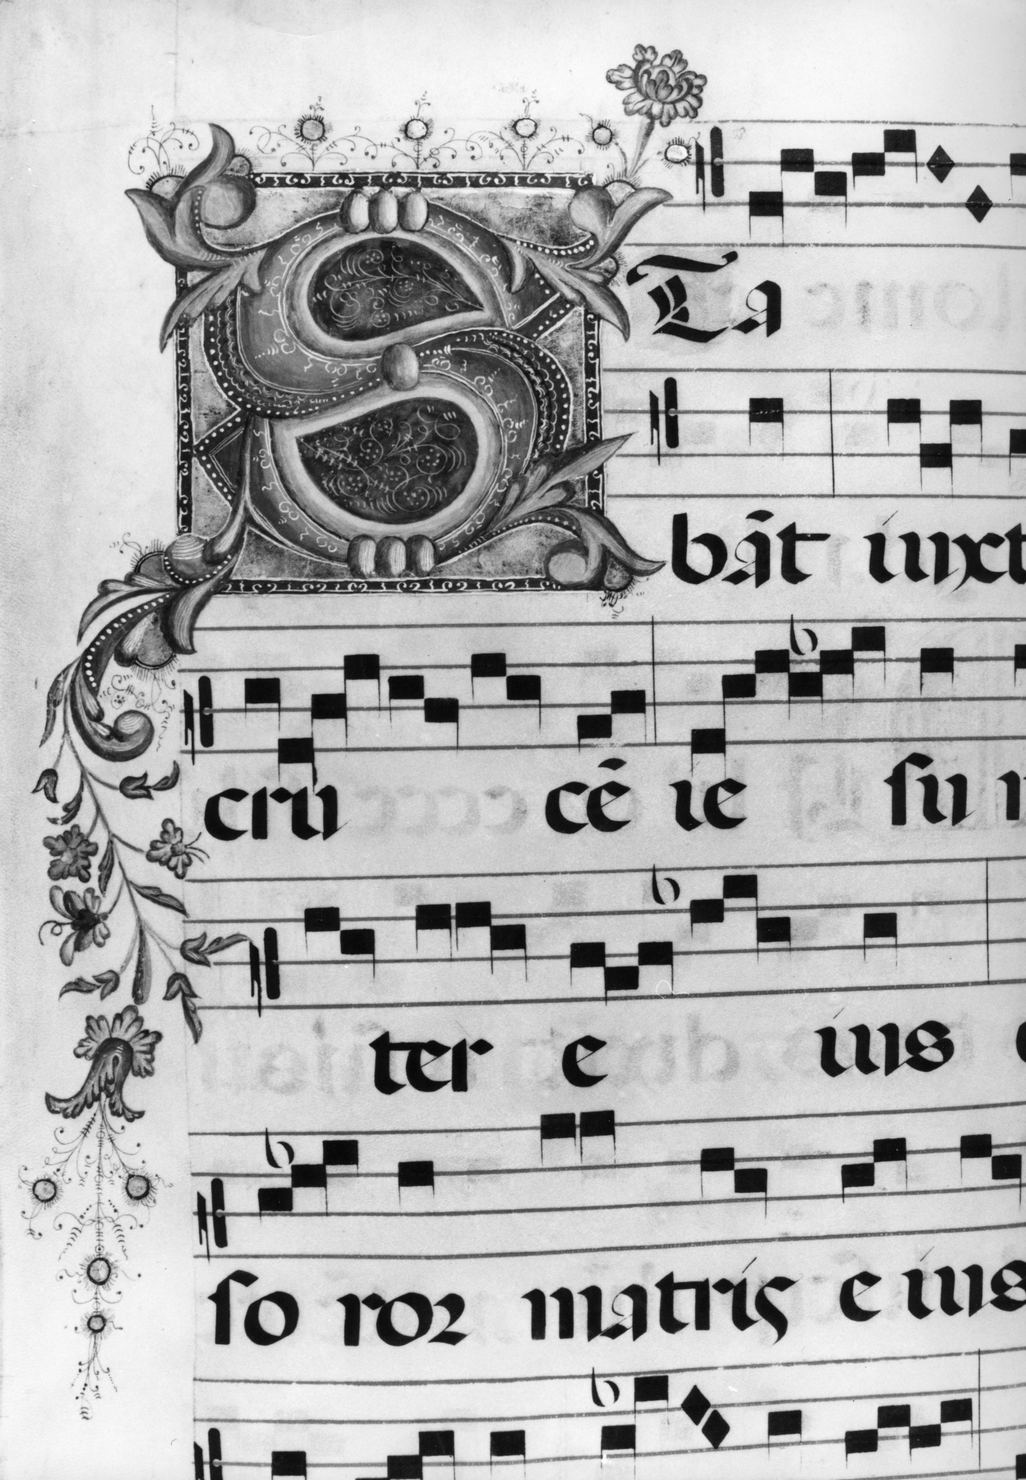 STa
bāt iuxt
cru cē ie su
ter e ius
so ror matris e ius